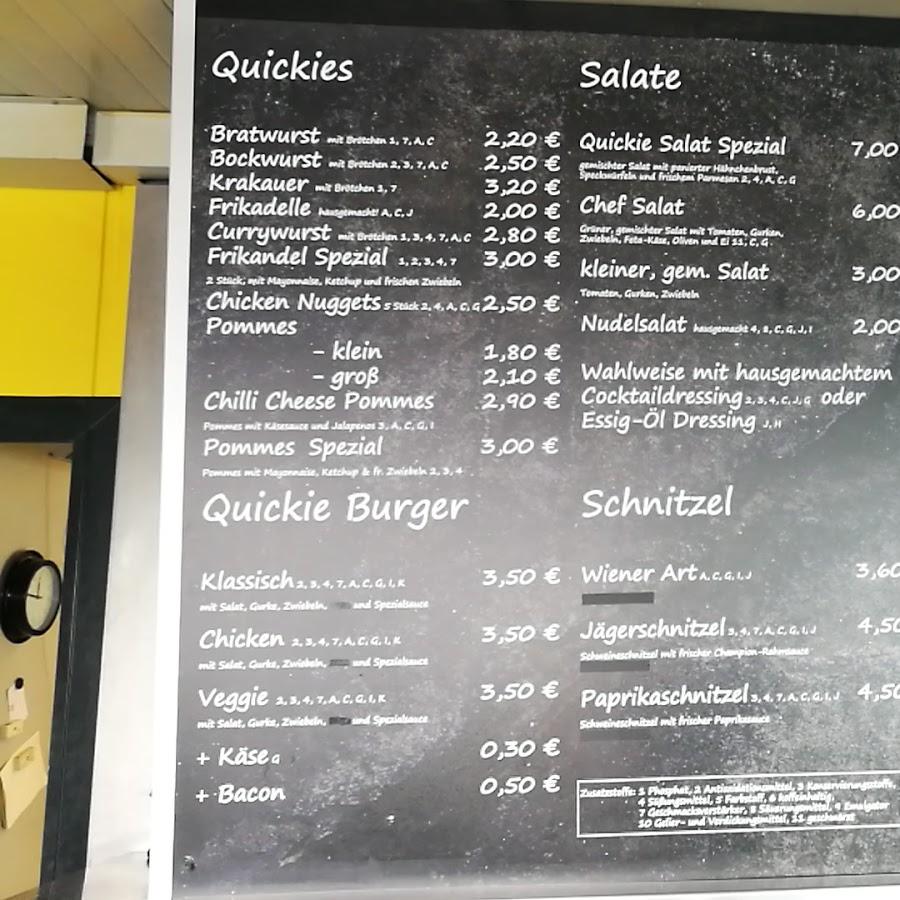 Quickies
Bratwurst mit Brötchen 1, 7, A, C 2,20 €
Bockwurst mit Brötchen 2, 3, 7, A, C 2,50 €
Krakauer mit Brötchen 1, 7 3,20 €
Frikadelle hausgemacht! A, C, J 2,00 €
Currywurst mit Brötchen 1, 3, 4, 7, A, C 2,80 €
Frikandel Spezial 1, 2, 3, 4, 7 3,00 €
2 Stück, mit Mayonnaise, Ketchup und frischen Zwiebeln
Chicken Nuggets 5 Stück 2, 4, A, C, G 2,50 €
Pommes
- klein 1,80 €
- groß 2,10 €
Chilli Cheese Pommes 2,90 €
Pommes mit Käsesauce und Jalapenos 3, A, C, G, I
Pommes Spezial 3,00 €
Pommes mit Mayonnaise, Ketchup & fr. Zwiebeln 2, 3, 4
Quickie Burger
Klassisch 2, 3, 4, 7, A, C, G, I, K 3,50 €
mit Salat, Gurke, Zwiebeln, und Spezialsauce
Chicken 2, 3, 4, 7, A, C, G, I, K 3,50 €
mit Salat, Gurke, Zwiebeln, und Spezialsauce
Veggie 2, 3, 4, 7, A, C, G, I, K 3,50 €
mit Salat, Gurke, Zwiebeln, und Spezialsauce
+ Käse G 0,30 €
+ Bacon 0,50 €
Salate
Quickie Salat Spezial 7,00
gemischter Salat mit panierter Hähnchenbrust,
Speckwürfeln und frischem Parmesan 2, 4, A, C, G
Chef Salat 6,00
Grüner, gemischter Salat mit Tomaten, Gurken,
Zwiebeln, Feta-Käse, Oliven und Ei 11, C, G
kleiner, gem. Salat 3,00
Tomaten, Gurken, Zwiebeln
Nudelsalat hausgemacht 4, 8, C, G, J, I 2,00
Wahlweise mit hausgemachtem
Cocktaildressing 2, 3, 4, C, J, G oder
Essig-Öl Dressing J, H
Schnitzel
Wiener Art A, C, G, I, J 3,60
Jägerschnitzel 3, 4, 7, A, C, G, I, J 4,50
Schweineschnitzel mit frischer Champion-Rahmsauce
Paprikaschnitzel 3, 4, 7, A, C, G, I, J 4,50
Schweineschnitzel mit frischer Paprikasauce
Zusatzstoffe: 1 Phosphat, 2 Antioxidationsmittel, 3 Konservierungsstoffe,
4 Süßungsmittel, 5 Farbstoff, 6 koffeinhaltig,
7 Geschmacksverstärker, 8 Säuerungsmittel, 9 Emulgator
10 Gelier- und Verdickungsmittel, 11 geschwärzt